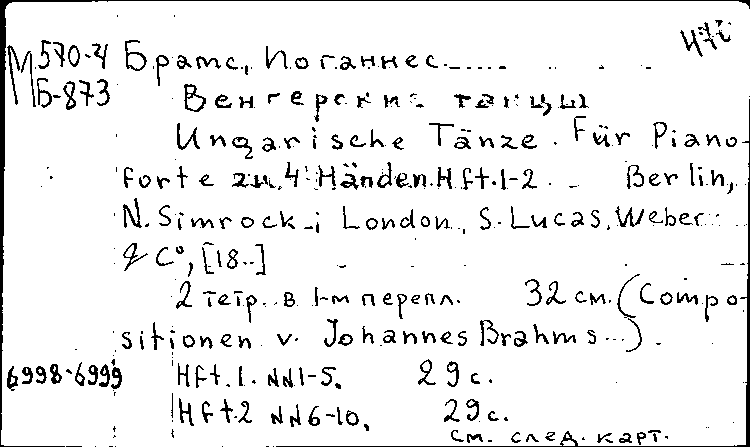 М 570-4 Брамс, Иоганнес
Б-873 Венгерские танцы
Ungarische Tänze. Für Piano-
forte zu 4 Händen. Hft. 1-2. Berlin,
N. Simrock; London, S. Lucas, Weber
& Cº, [18..]
2 тетр. в 1-м перепл. 32 см. (Compo-
sitionen v. Johannes Brahms...).
6998-6999 Hft. 1. NN1-5. 29 с.
Hft. 2 NN6-10. 29 с.
см. след. карт.